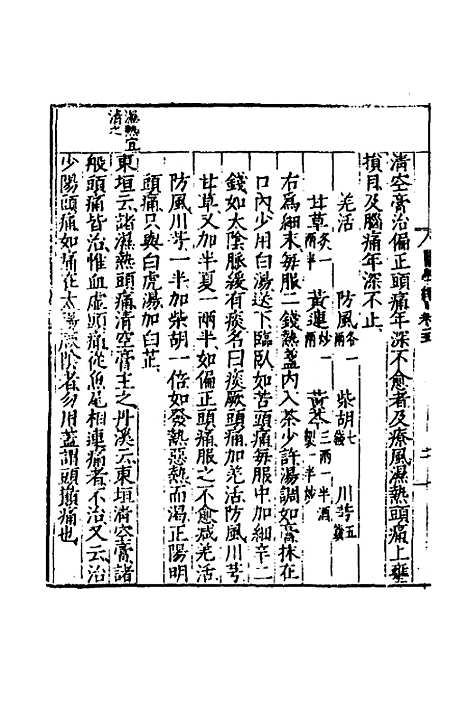 清空膏治偏正頭痛年深不愈者及療風濕熱頭痛上壅
損目及腦痛年深不止
羌活一兩 防風一兩 柴胡七錢 川芎五錢
甘草炙一兩半 黃連炒一兩 黃芩三兩一半酒製一半炒
右為細末每服二錢熱盞內入茶少許湯調如膏抹在
口內少用白湯送下臨臥如苦頭痛每服中加細辛二
錢如太陰脈緩有痰名曰痰厥頭痛加羌活防風川芎
甘草又加半夏一兩半如偏正頭痛服之不愈減羌活
防風川芎一半加柴胡一倍如發熱惡熱而渴正陽明
頭痛只與白虎湯加白芷
濕熱宜清之
東垣云諸濕熱頭痛清空膏主之丹溪云東垣清空膏諸
般頭痛皆治惟血虛頭痛從魚尾相連痛者不治又云治
少陽頭痛如痛在太陽厥陰者勿用蓋謂頭巔痛也